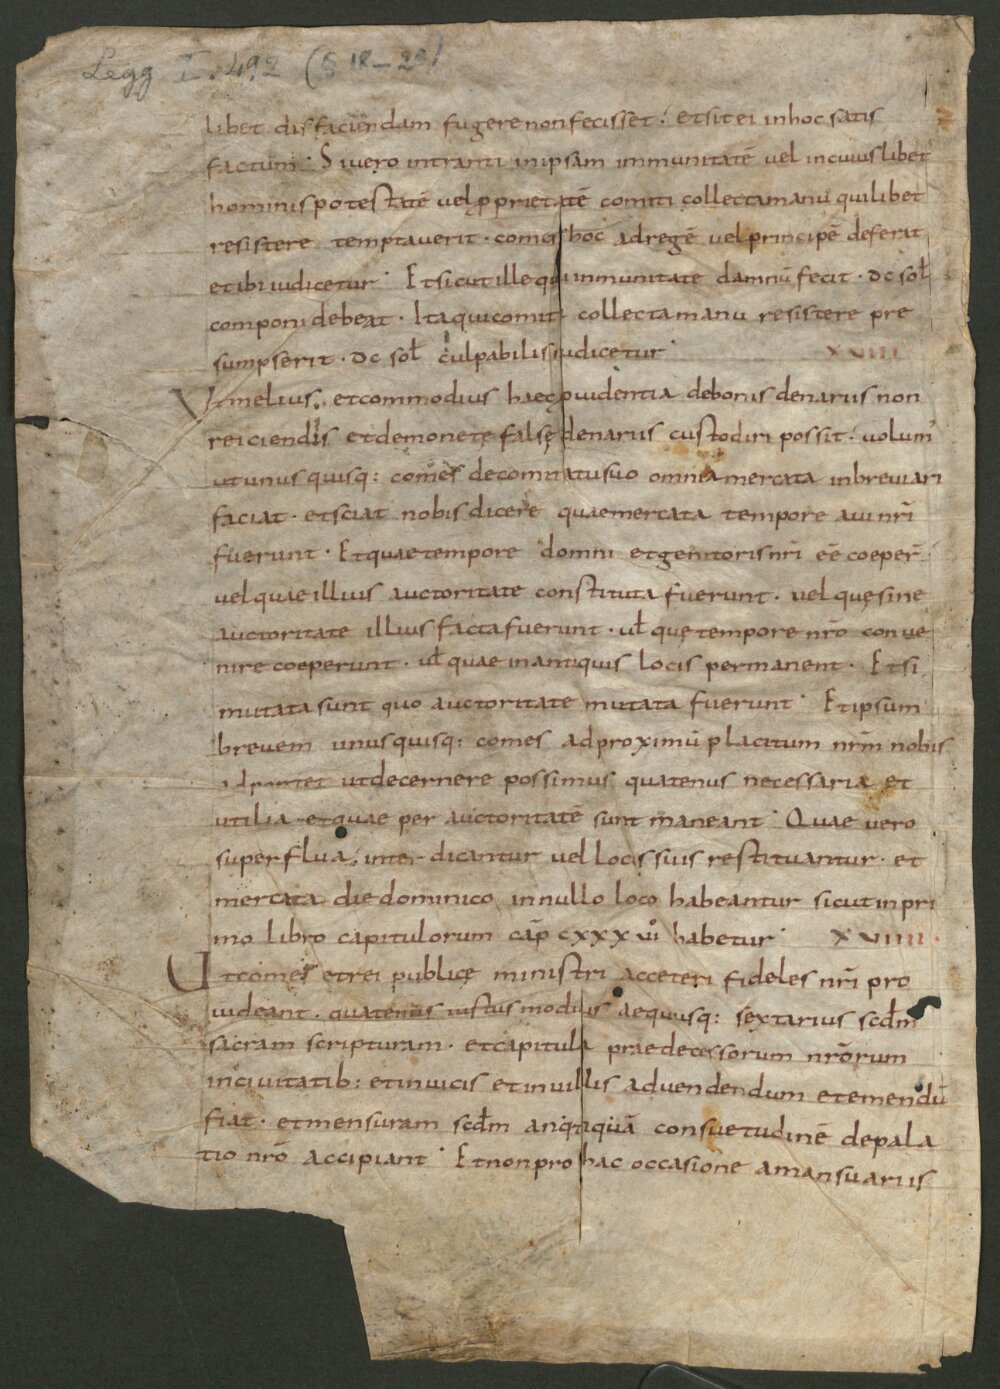 Legg I. 492 (§ 18–20)
libet disfaciendam fugere non fecisset. et sit ei in hoc satis
factum. Si vero intranti in ipsam immunitatē vel in cuiuslibet
hominis potestatē vel ꝓprietatē comiti collecta manu quilibet
resistere temptaverit. comes hoc ad regē vel principē deferat
et ibi iudicetur. Et sicut ille qui in munitate damnū fecit. dc sol
componi debeat. Ita qui comiti collecta manu resistere pre
sumpserit. dc sol culpabilis iudicetur. XVIIII
Ut melius. et commodius haec ꝓvidentia de bonis denariis non
reiciendis et de monetę falsę denariis custodiri possit. volum'
ut unusquisq: comes de comitatu suo omnia mercata inbreviari
faciat. et sciat nobis dicere quae mercata tempore avi nr̄i
fuerunt. Et quae tempore domni et genitoris nr̄i eē coeper̄.
vel quae illius auctoritate constituta fuerunt. vel quę sine
auctoritate illius facta fuerunt. ul quę tempore nr̄o conve
nire coeperunt. ul quae in antiquis locis permanent. Et si
mutata sunt quo auctoritate mutata fuerunt. Et ipsum
brevem unusquisq: comes ad proximū placitum nr̄m nobis
adportet ut decernere possimus quatenus necessaria et
utilia et quae per auctoritatē sunt maneant. Quae vero
superflua. interdicantur vel locis suis restituantur. et
mercata die dominico in nullo loco habeantur sicut in pri
mo libro capitulorum cap̄ cxxxvi habetur. XVIIII.
Ut comes et rei publicę ministri ac ceteri fideles nr̄i pro
videant. quatenus iustus modius aequusq: sextarius scdm
sacram scripturam. et capitula praedecessorum nr̄orum
in civitatib: et in vicis et in villis ad vendendum et emendū
fiat. et mensuram scdm antiquā consuetudinē de pala
tio nr̄o accipiant. Et non pro hac occasione a mansuariis